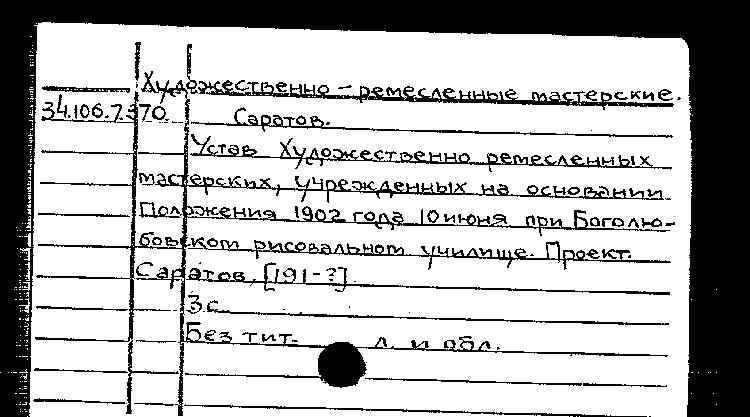 Художественно-ремесленные мастерские.
34.106.7.370 Саратов.
Устав Художественно ремесленных
мастерских, учрежденных на основании
Положения 1902 года 10 июня при Боголю-
бовском рисовальном училище. Проект.
Саратов, [191-?]
3 с.
Без тит. л. и обл.